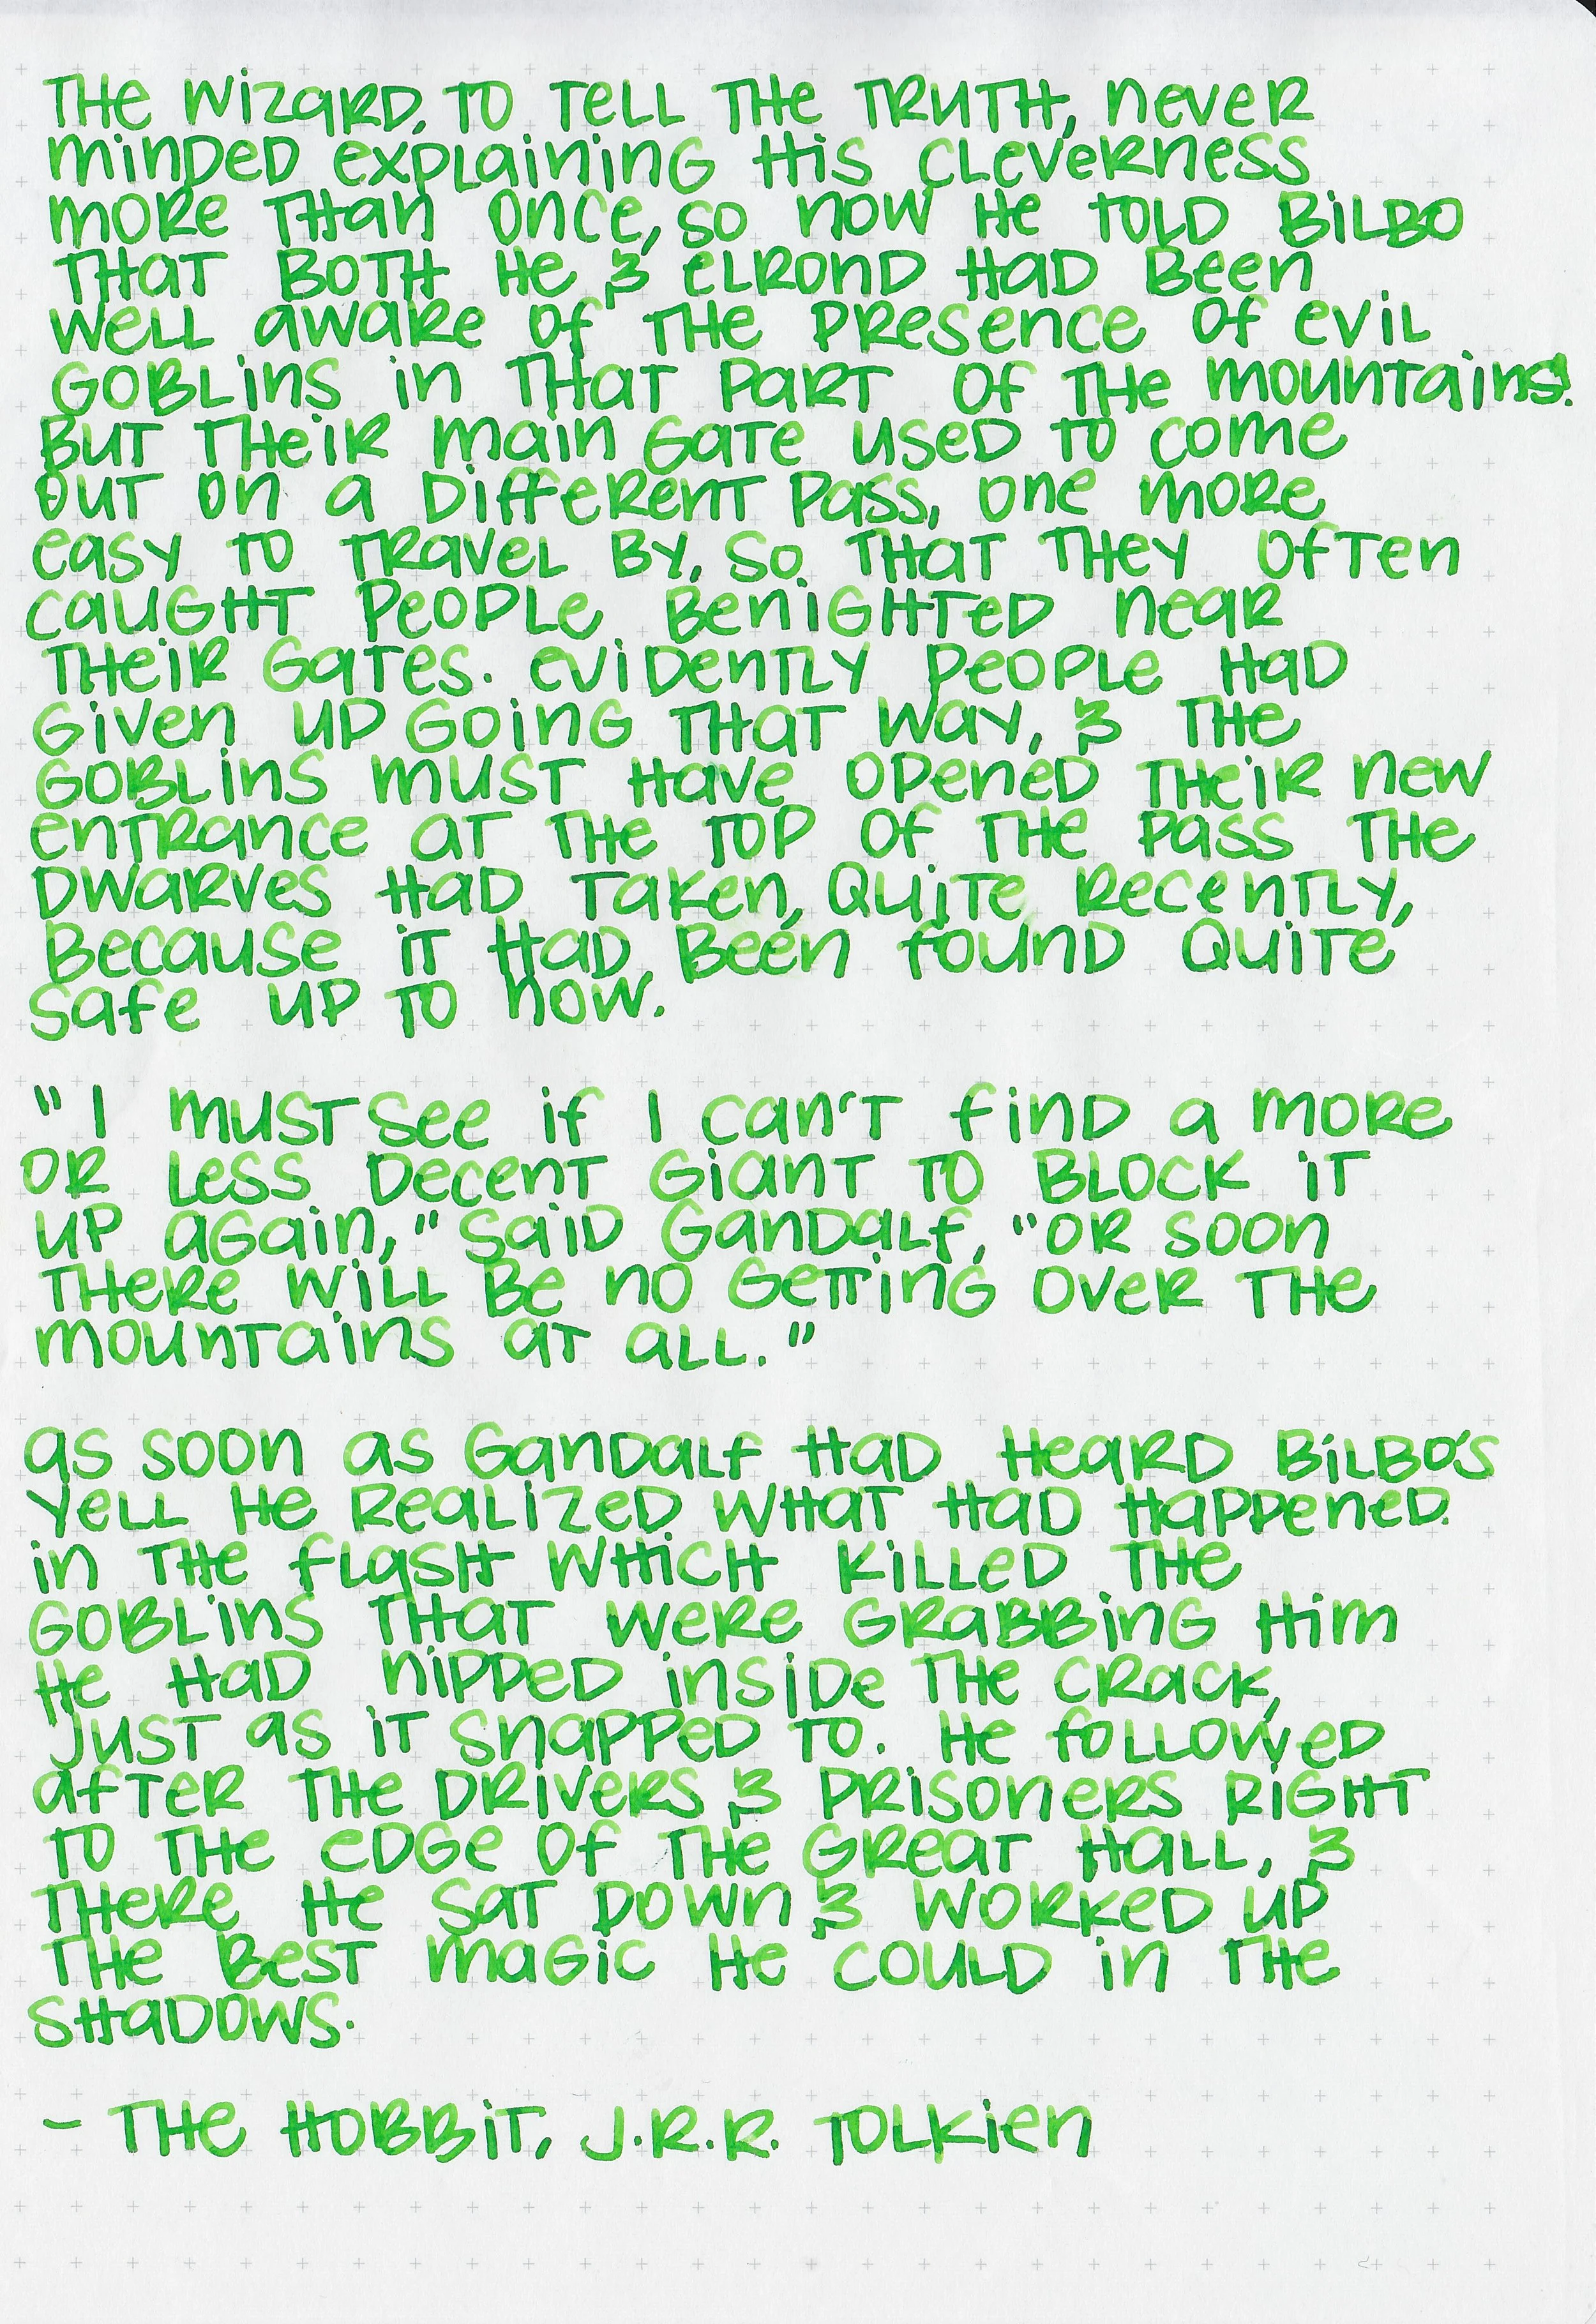 THE WIZARD, TO TELL THE TRUTH, NEVER
MINDED EXPLAINING HIS CLEVERNESS
MORE THAN ONCE, SO NOW HE TOLD BILBO
THAT BOTH HE & ELROND HAD BEEN
WELL AWARE OF THE PRESENCE OF EVIL
GOBLINS IN THAT PART OF THE MOUNTAINS.
BUT THEIR MAIN GATE USED TO COME
OUT ON A DIFFERENT PASS, ONE MORE
EASY TO TRAVEL BY, SO THAT THEY OFTEN
CAUGHT PEOPLE BENIGHTED NEAR
THEIR GATES. EVIDENTLY PEOPLE HAD
GIVEN UP GOING THAT WAY, & THE
GOBLINS MUST HAVE OPENED THEIR NEW
ENTRANCE AT THE TOP OF THE PASS THE
DWARVES HAD TAKEN, QUITE RECENTLY,
BECAUSE IT HAD BEEN FOUND QUITE
SAFE UP TO NOW.
"I MUST SEE IF I CAN'T FIND A MORE
OR LESS DECENT GIANT TO BLOCK IT
UP AGAIN," SAID GANDALF, "OR SOON
THERE WILL BE NO GETTING OVER THE
MOUNTAINS AT ALL."
AS SOON AS GANDALF HAD HEARD BILBO'S
YELL HE REALIZED WHAT HAD HAPPENED.
IN THE FLASH WHICH KILLED THE
GOBLINS THAT WERE GRABBING HIM
HE HAD NIPPED INSIDE THE CRACK,
JUST AS IT SNAPPED TO. HE FOLLOWED
AFTER THE DRIVERS & PRISONERS RIGHT
TO THE EDGE OF THE GREAT HALL, &
THERE HE SAT DOWN & WORKED UP
THE BEST MAGIC HE COULD IN THE
SHADOWS.
- THE HOBBIT, J.R.R. TOLKIEN